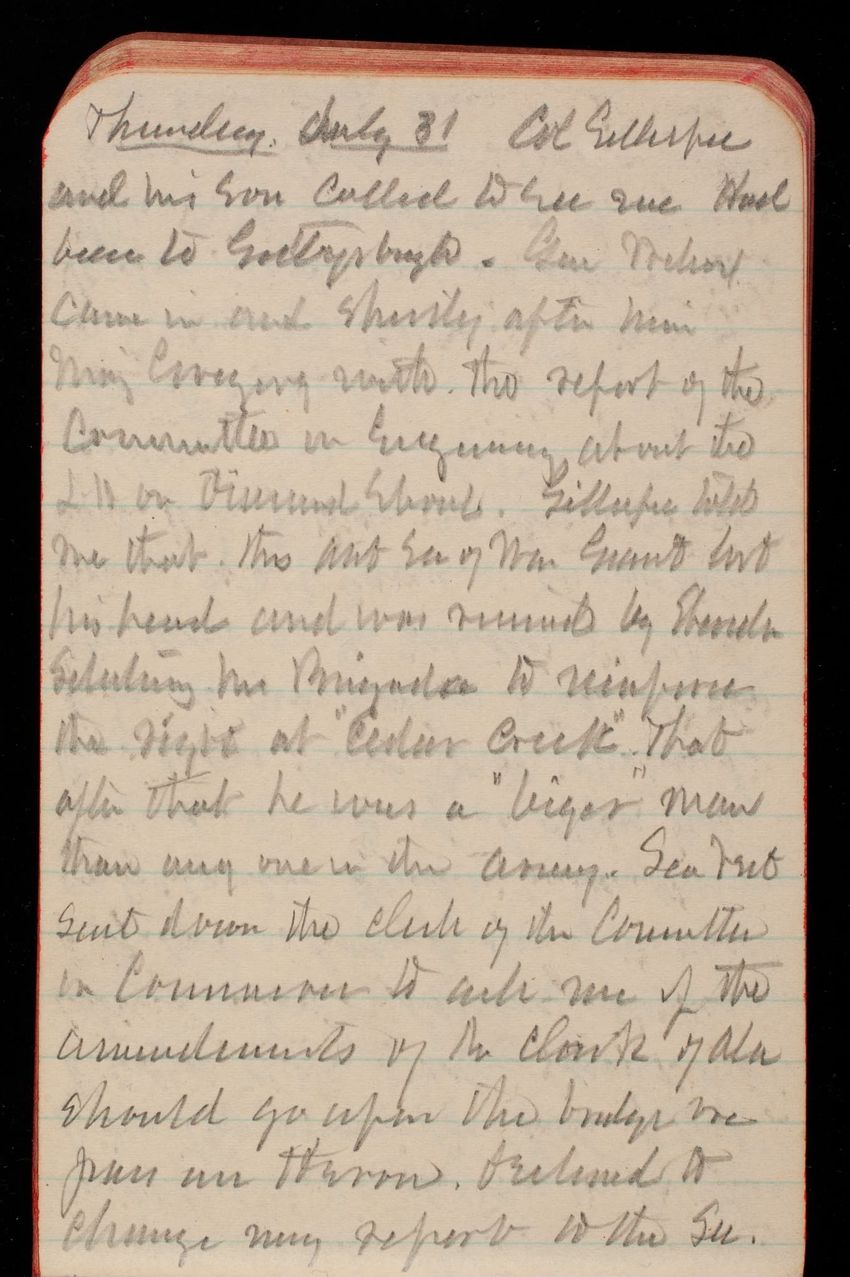 Thursday. July 31 Col Gillespie
and his son called to see me Had
been to Gettysburgh. Gen
came in and shortly after him
Maj with the report of the
Committee in Enquiring about the
L H on Diamond Shoal. Gillespie told
me that the Ast Sec of War Grant lost
his head and was
his Brigade to reinforce
the right at "Cedar Creek" That
after that he was a "biger" man
than any one in the army. Sen Vest
sent down the clerk of the Committee
on Commerce to ask me if the
amendments of the of Ala
should go upon the bridge
Declined to
change my report to the Sec.